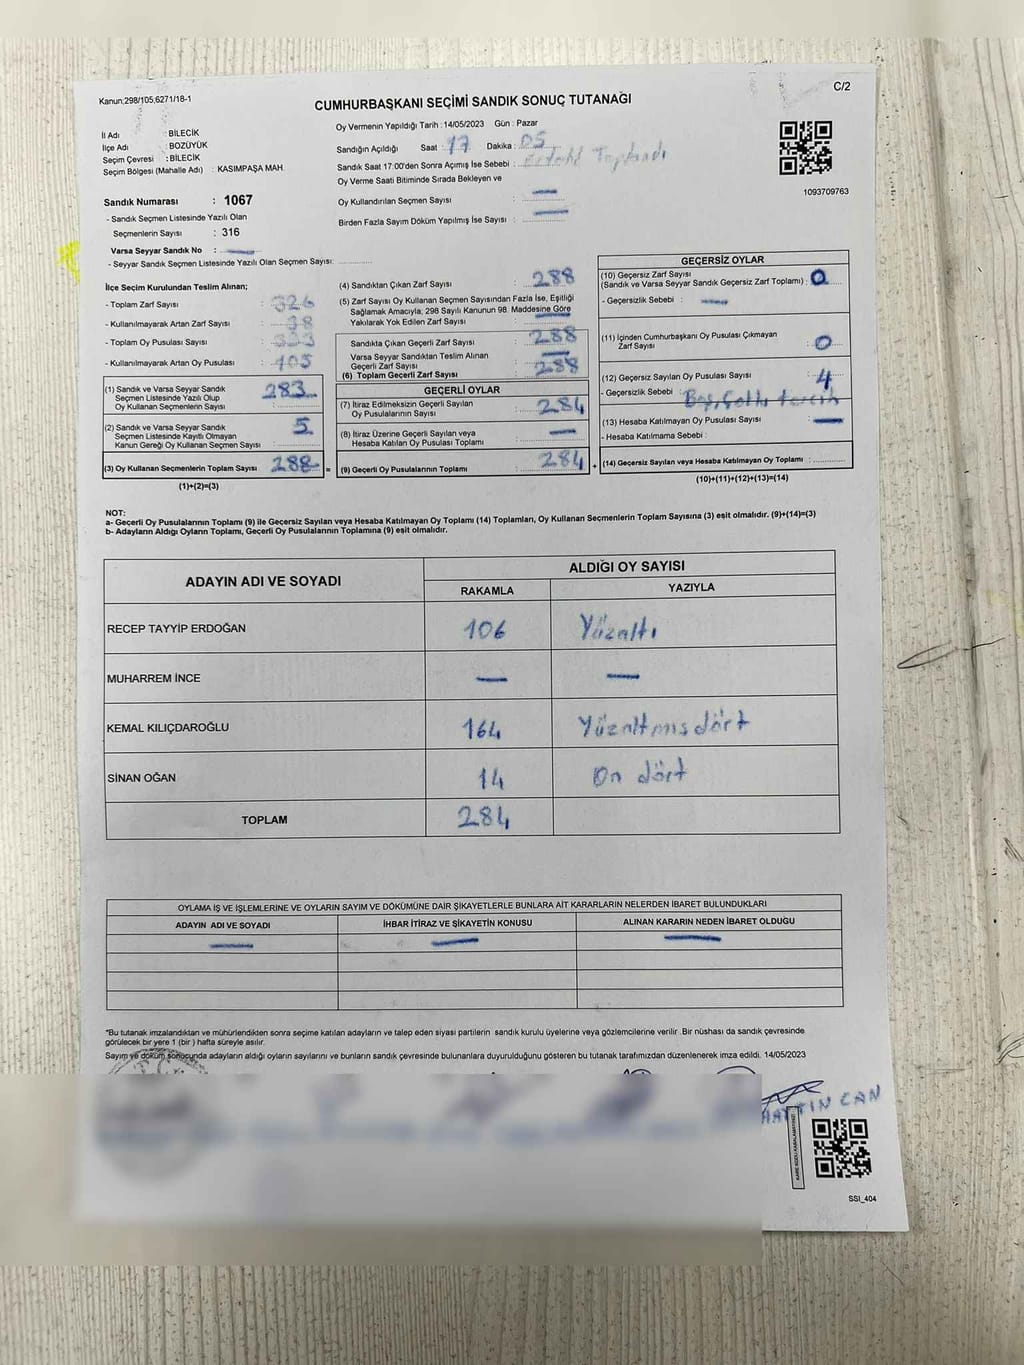 Kanun;298/105,6271/18-1
C/2
CUMHURBAŞKANI SEÇİMİ SANDIK SONUÇ TUTANAĞI
İl Adı : BİLECİK
İlçe Adı : BOZÜYÜK
Seçim Çevresi : BİLECİK
Seçim Bölgesi (Mahalle Adı) : KASIMPAŞA MAH.
Oy Vermenin Yapıldığı Tarih : 14/05/2023 Gün : Pazar
Sandığın Açıldığı Saat : 17 Dakika : 05
Sandık Saat 17:00'den Sonra Açılmış İse Sebebi : Toplandı
Oy Verme Saati Bitiminde Sırada Bekleyen ve
Oy Kullandırılan Seçmen Sayısı : —
Birden Fazla Sayım Döküm Yapılmış İse Sayısı : —
1093709763
Sandık Numarası : 1067
- Sandık Seçmen Listesinde Yazılı Olan
Seçmenlerin Sayısı : 316
Varsa Seyyar Sandık No : —
- Seyyar Sandık Seçmen Listesinde Yazılı Olan Seçmen Sayısı:
İlçe Seçim Kurulundan Teslim Alınan;
- Toplam Zarf Sayısı : 326
- Kullanılmayarak Artan Zarf Sayısı : 38
- Toplam Oy Pusulası Sayısı :
- Kullanılmayarak Artan Oy Pusulası : 105
(1) Sandık ve Varsa Seyyar Sandık
Seçmen Listesinde Yazılı Olup
Oy Kullanan Seçmenlerin Sayısı : 283
(2) Sandık ve Varsa Seyyar Sandık
Seçmen Listesinde Kayıtlı Olmayan
Kanun Gereği Oy Kullanan Seçmen Sayısı : 5
(3) Oy Kullanan Seçmenlerin Toplam Sayısı : 288 =
(1)+(2)=(3)
(4) Sandıktan Çıkan Zarf Sayısı : 288
(5) Zarf Sayısı Oy Kullanan Seçmen Sayısından Fazla İse, Eşitliği
Sağlamak Amacıyla; 298 Sayılı Kanunun 98. Maddesine Göre
Yakılarak Yok Edilen Zarf Sayısı : —
Sandıkta Çıkan Geçerli Zarf Sayısı : 288
Varsa Seyyar Sandıktan Teslim Alınan
Geçerli Zarf Sayısı : —
(6) Toplam Geçerli Zarf Sayısı : 288
GEÇERLİ OYLAR
(7) İtiraz Edilmeksizin Geçerli Sayılan
Oy Pusulalarının Sayısı : 284
(8) İtiraz Üzerine Geçerli Sayılan veya
Hesaba Katılan Oy Pusulası Toplamı : —
(9) Geçerli Oy Pusulalarının Toplamı : 284 +
GEÇERSİZ OYLAR
(10) Geçersiz Zarf Sayısı
(Sandık ve Varsa Seyyar Sandık Geçersiz Zarf Toplamı) : 0
- Geçersizlik Sebebi : —
(11) İçinden Cumhurbaşkanı Oy Pusulası Çıkmayan
Zarf Sayısı : 0
(12) Geçersiz Sayılan Oy Pusulası Sayısı : 4
- Geçersizlik Sebebi : Boş, Çoklu tercih
(13) Hesaba Katılmayan Oy Pusulası Sayısı : —
- Hesaba Katılmama Sebebi :
(14) Geçersiz Sayılan veya Hesaba Katılmayan Oy Toplamı :
(10)+(11)+(12)+(13)=(14)
NOT:
a- Geçerli Oy Pusulalarının Toplamı (9) ile Geçersiz Sayılan veya Hesaba Katılmayan Oy Toplamı (14) Toplamları, Oy Kullanan Seçmenlerin Toplam Sayısına (3) eşit olmalıdır. (9)+(14)=(3)
b- Adayların Aldığı Oyların Toplamı, Geçerli Oy Pusulalarının Toplamına (9) eşit olmalıdır.
ADAYIN ADI VE SOYADI
ALDIĞI OY SAYISI
RAKAMLA YAZIYLA
RECEP TAYYİP ERDOĞAN 106 Yüzaltı
MUHARREM İNCE — —
KEMAL KILIÇDAROĞLU 164 Yüzaltmışdört
SİNAN OĞAN 14 On dört
TOPLAM 284
OYLAMA İŞ VE İŞLEMLERİNE VE OYLARIN SAYIM VE DÖKÜMÜNE DAİR ŞİKAYETLERLE BUNLARA AİT KARARLARIN NELERDEN İBARET BULUNDUKLARI
ADAYIN ADI VE SOYADI İHBAR İTİRAZ VE ŞİKAYETİN KONUSU ALINAN KARARIN NEDEN İBARET OLDUĞU
— — —
*Bu tutanak imzalandıktan ve mühürlendikten sonra seçime katılan adayların ve talep eden siyasi partilerin sandık kurulu üyelerine veya gözlemcilerine verilir. Bir nüshası da sandık çevresinde
görülecek bir yere 1 (bir) hafta süreyle asılır.
Sayım ve döküm sonucunda adayların aldığı oyların sayılarını ve bunların sandık çevresinde bulunanlara duyurulduğunu gösteren bu tutanak tarafımızdan düzenlenerek imza edildi. 14/05/2023
CAN
SSI_404